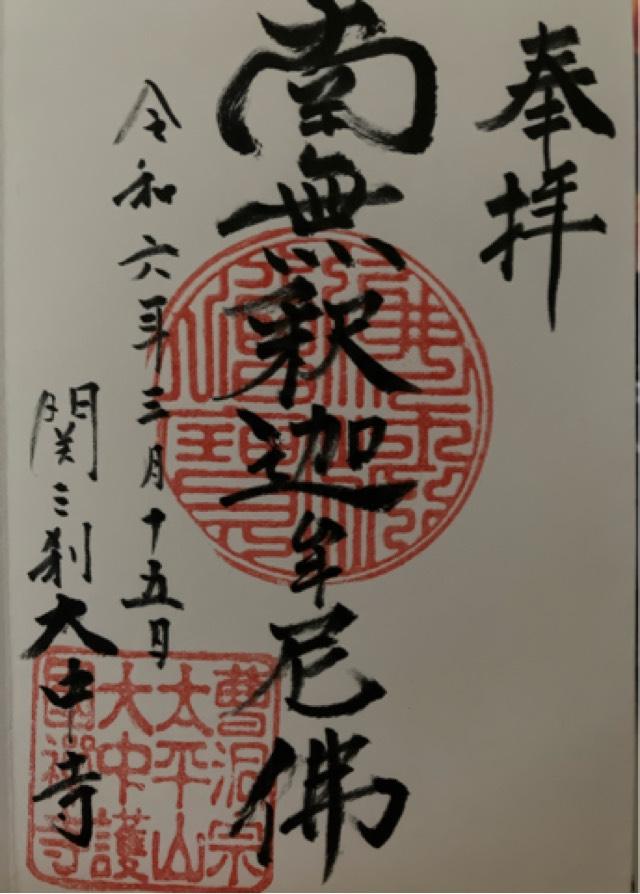 奉拝
南無釈迦牟尼佛
令和六年三月十五日
関三刹大中寺
曹洞宗
太平山
大中護
國禅寺